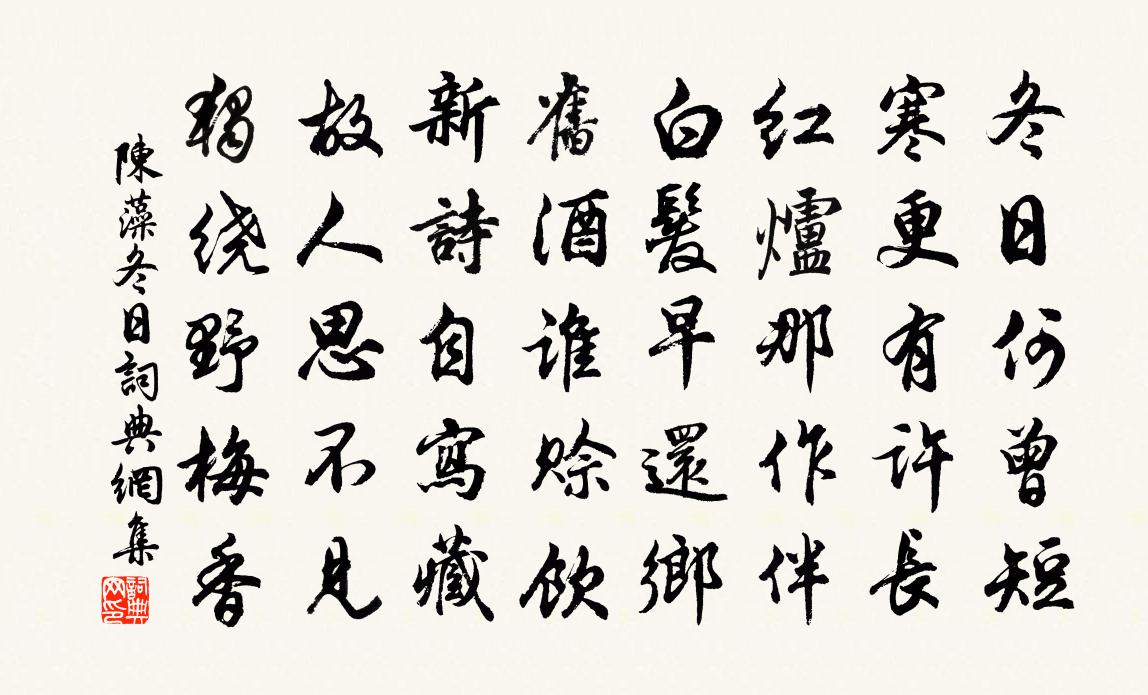 冬日何曾短
寒更有許長
紅爐那作伴
白髮早還鄉
舊酒誰賒飲
新詩自寫藏
故人思不見
獨绕野梅香
陳藻冬日詞典網集
詞典网印